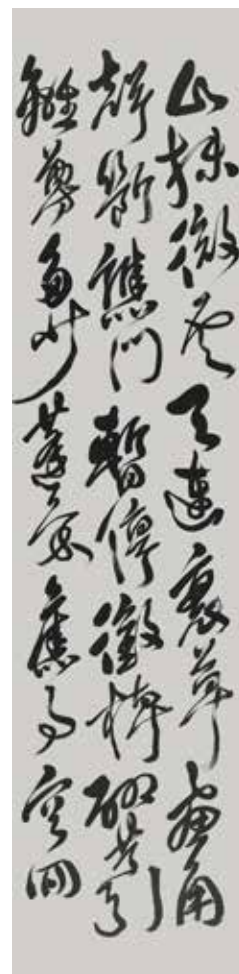 山抹微雲天連衰草畫角
聲斷譙門暫停徵棹聊共引
離尊多少蓬萊舊事空回